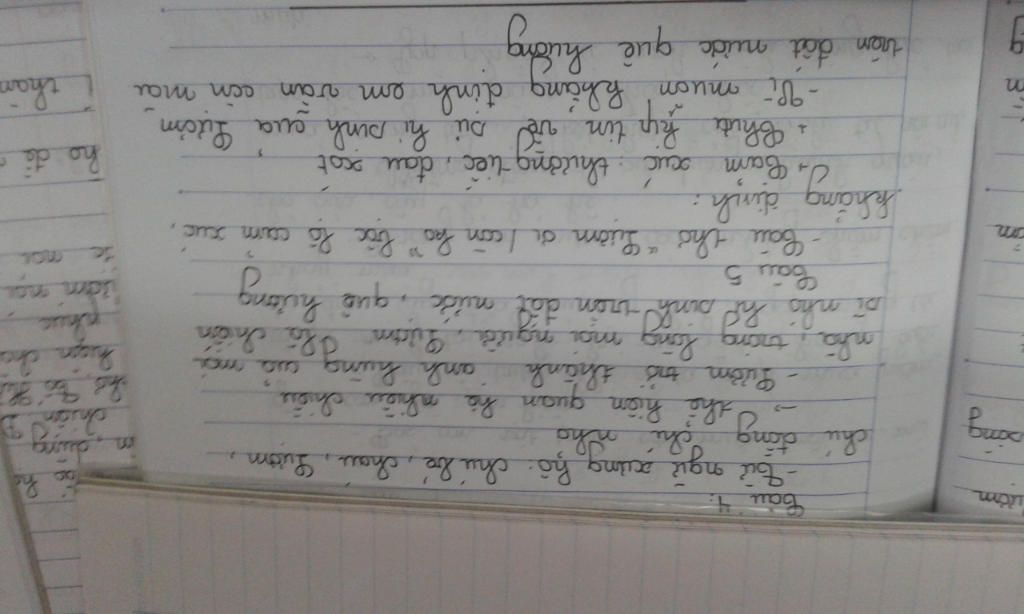 Câu 4:
- Từ ngữ xưng hô: chú bé, cháu, Lượm,
chú đồng chí nhỏ
→ thể hiện quan hệ nhiều chiều
- Lượm trở thành anh hùng của mọi
nhà, trong lòng mọi người, Lượm là chiến
sĩ nhỏ hi sinh trên đất nước, quê hương
Câu 5
- Câu thơ "Lượm ơi, còn ko" bộc lộ cảm xúc,
khẳng định:
+ Cảm xúc: thương tiếc, đau xót
+ Chưa kịp tin về sự hi sinh của Lượm
- Vì muốn khẳng định em vẫn còn mãi
trên đất nước quê hương